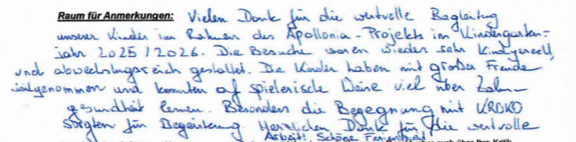 Raum für Anmerkungen: Vielen Dank für die wertvolle Begleitung
unserer Kinder im Rahmen des Apollonia-Projekts im Kindergarten-
jahr 2025/2026. Die Besuche waren wieder sehr kindgerecht
und abwechslungsreich gestaltet. Die Kinder haben mit großer Freude
teilgenommen und konnten auf spielerische Weise viel über Zahn-
gesundheit lernen. Besonders die Begegnung mit KROKO
sorgten für Begeisterung. Herzlichen Dank für die wertvolle
Arbeit! Schöne